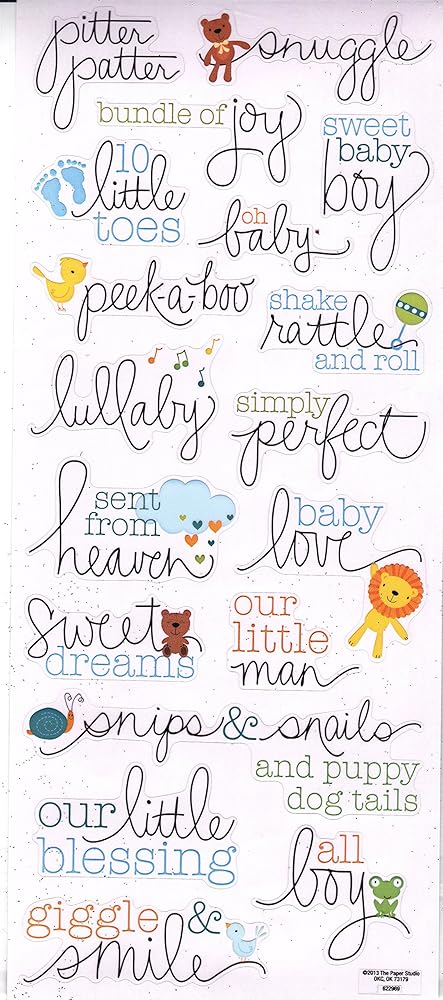 pitter
patter
snuggle
bundle of joy
sweet
baby
boy
10
little
toes
oh
baby
peek-a-boo
shake
rattle
and roll
lullaby
simply
perfect
sent
from
heaven
baby
love
sweet
dreams
our
little
man
snips & snails
and puppy
dog tails
our little
blessing
all
boy
giggle &
smile
©2013 The Paper Studio
OKC, OK 73179
622969